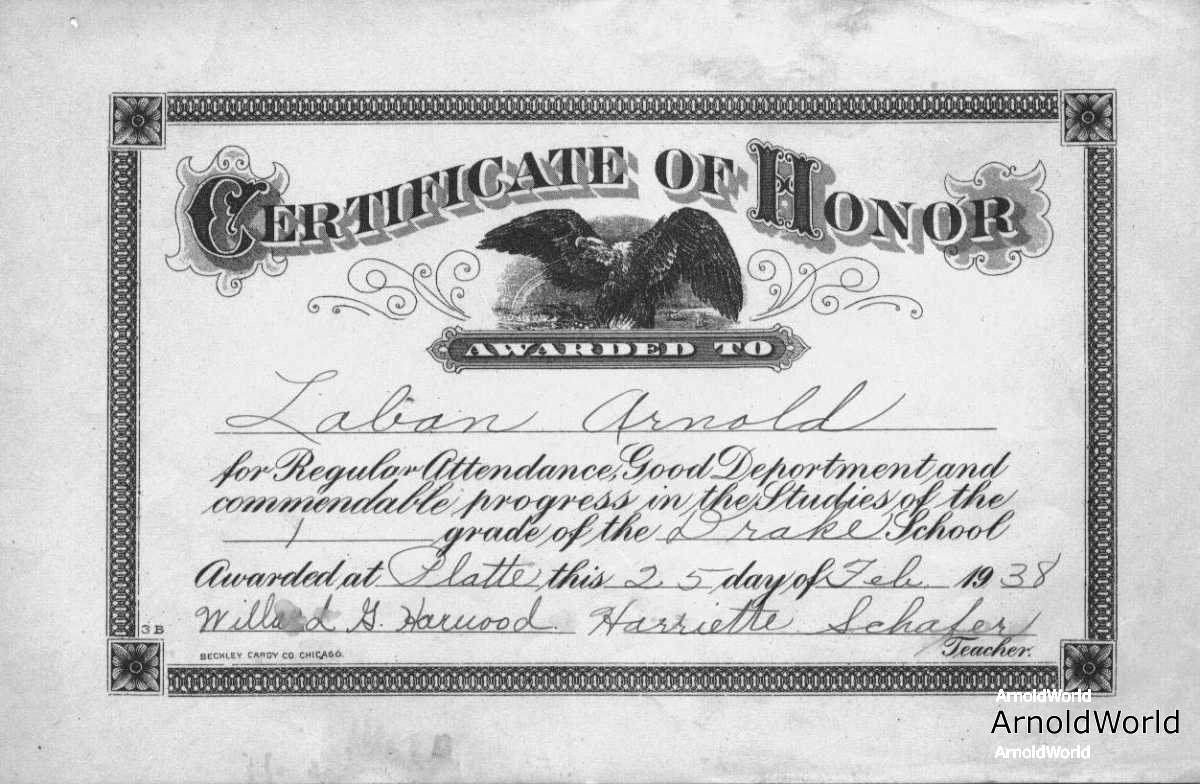 CERTIFICATE OF HONOR
AWARDED TO
Laban Arnold
for Regular Attendance, Good Deportment and
commendable progress in the Studies of the
1 grade of the Drake School
Awarded at Platte this 25 day of Feb. 1938
Willard G. Harwood Harriette Schafer
Teacher.
3 B
BECKLEY CARDY CO. CHICAGO.
ArnoldWorld
ArnoldWorld
ArnoldWorld